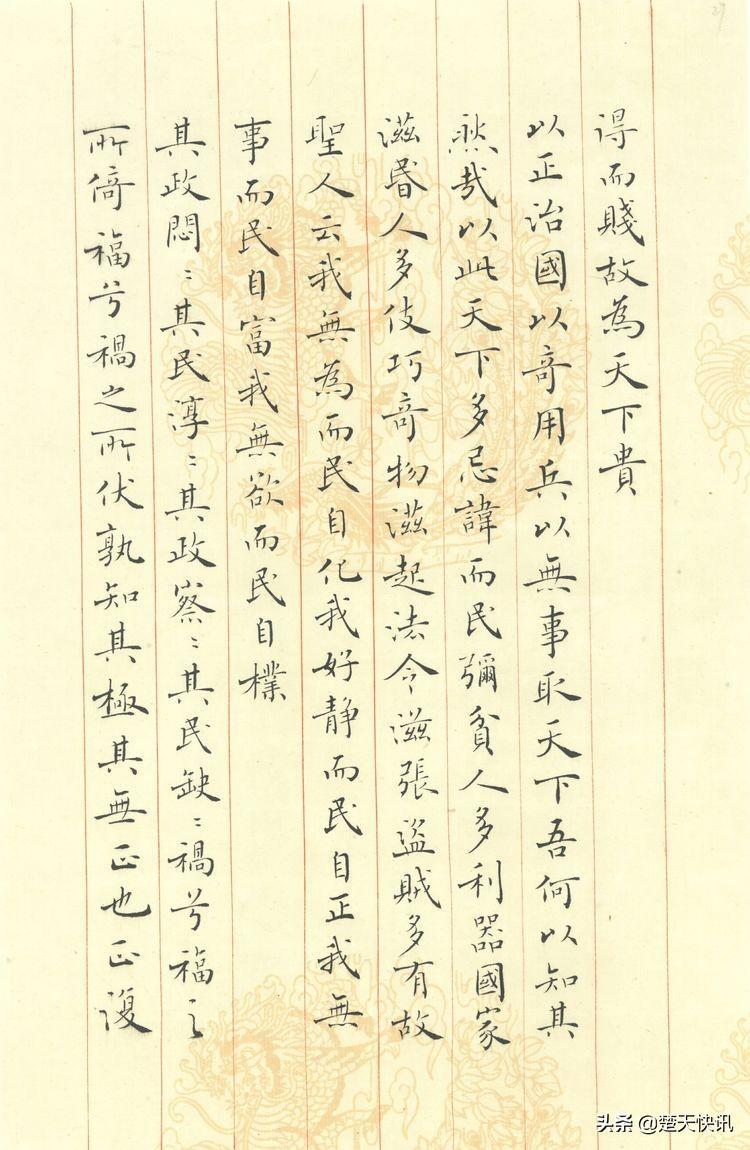 得而賤故為天下貴
以正治國以奇用兵以無事取天下吾何以知其
然哉以此天下多忌諱而民彌貧人多利器國家
滋昬人多伎巧奇物滋起法令滋張盜賊多有故
聖人云我無為而民自化我好静而民自正我無
事而民自富我無欲而民自樸
其政悶〻其民淳〻其政察〻其民缺〻禍兮福之
所倚福兮禍之所伏孰知其極其無正也正復
头条 @楚天快讯